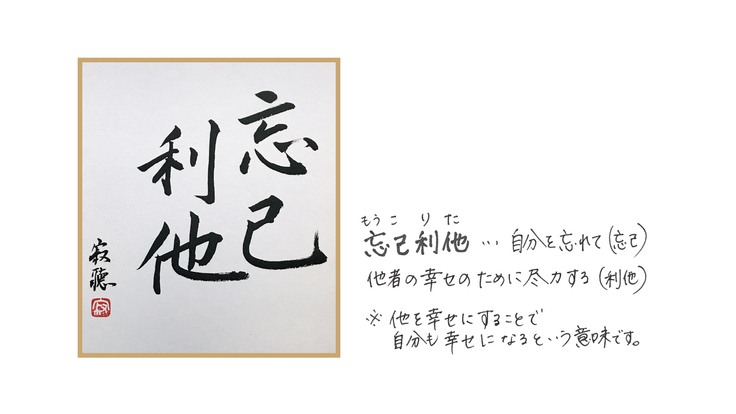 忘己
利他
寂聴
寂
もうこりた
忘己利他 … 自分を忘れて(忘己)
他者の幸せのために尽力する(利他)
※ 他を幸せにすることで
自分も幸せになるという意味です。